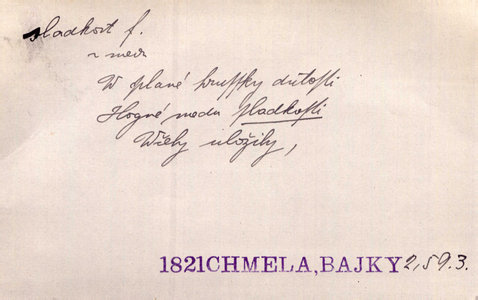 sladkost f.
~ med
W plané hruſſky dutoſti
Hogné medu ſladkoſti
Wčely uložily,
1821 CHMELA, BAJKY 2,59.3.